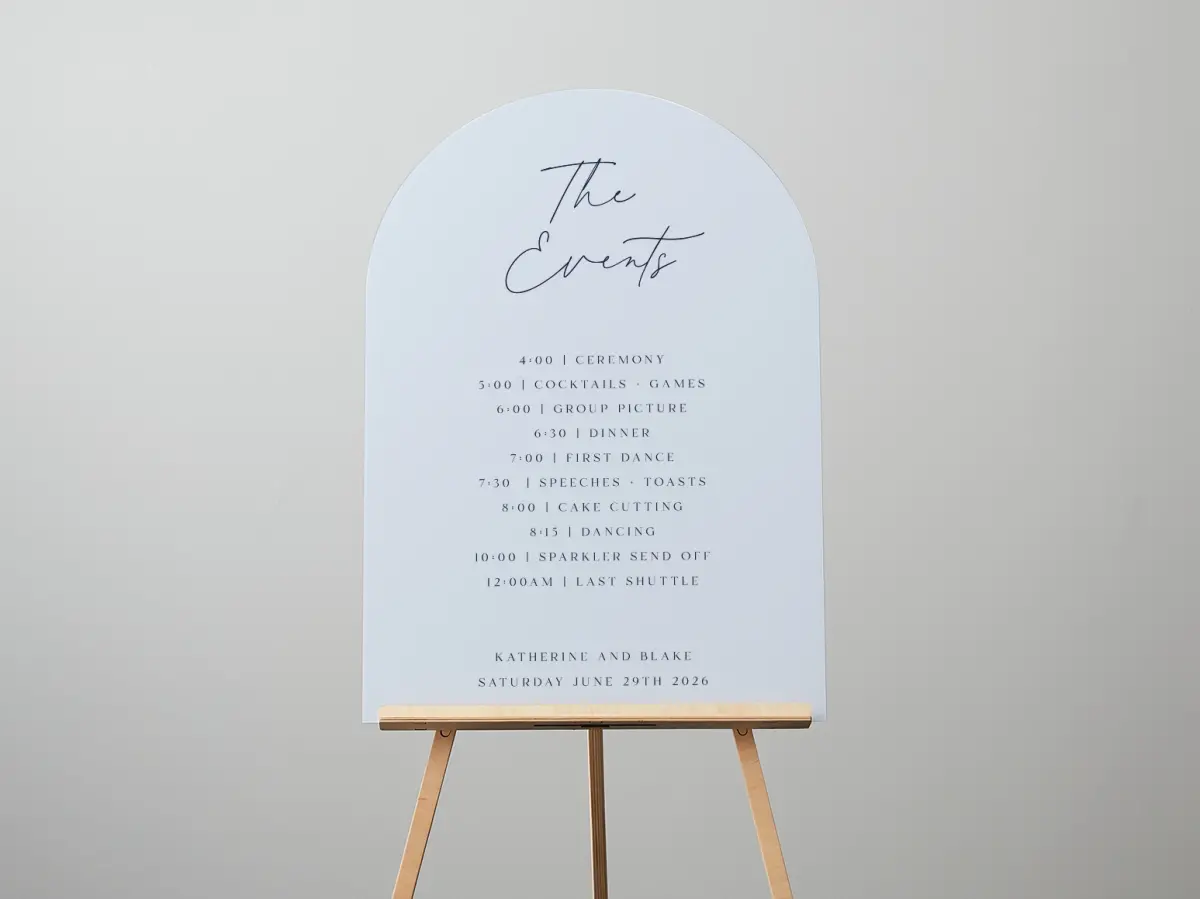 The
Events
4:00 | CEREMONY
5:00 | COCKTAILS · GAMES
6:00 | GROUP PICTURE
6:30 | DINNER
7:00 | FIRST DANCE
7:30 | SPEECHES · TOASTS
8:00 | CAKE CUTTING
8:15 | DANCING
10:00 | SPARKLER SEND OFF
12:00AM | LAST SHUTTLE
KATHERINE AND BLAKE
SATURDAY JUNE 29TH 2026